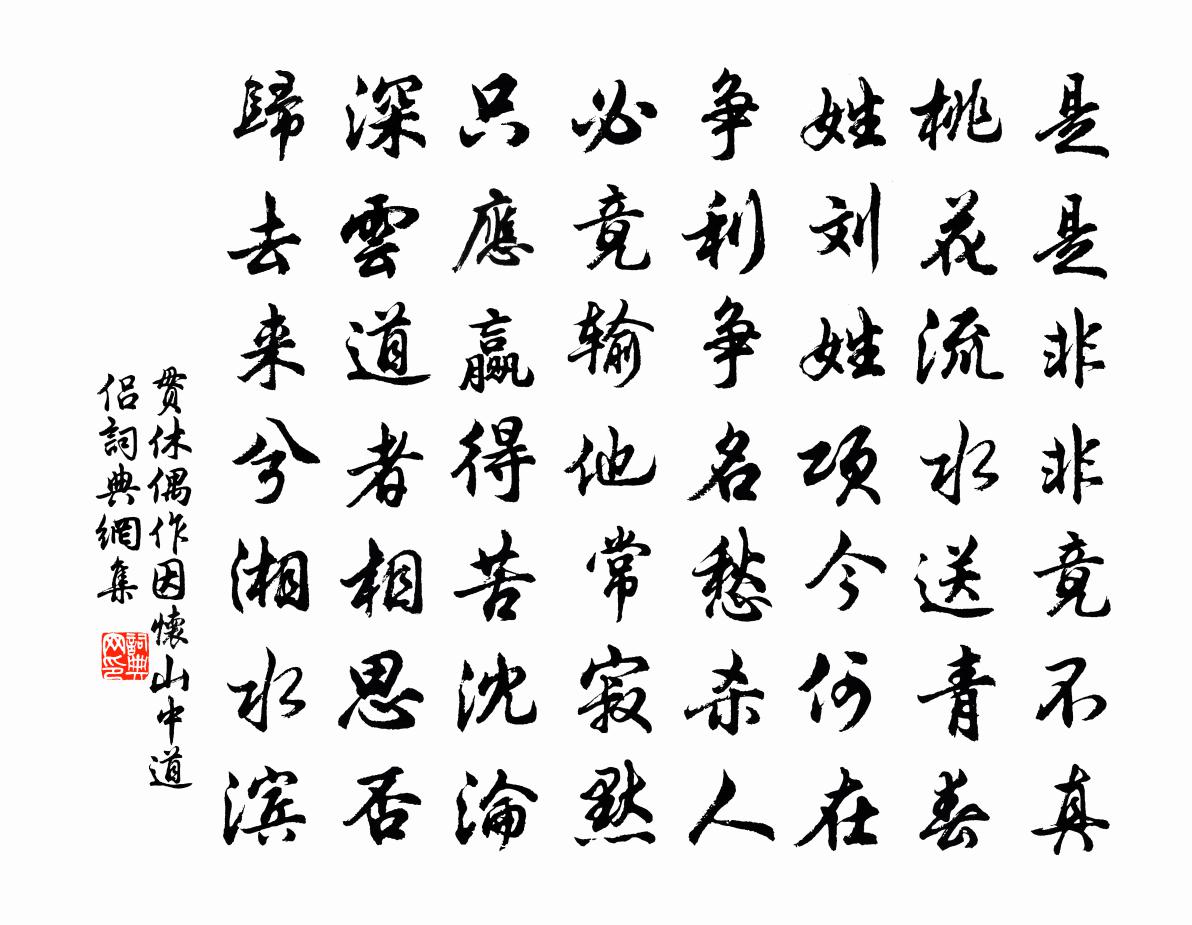 是是非非竟不真
桃花流水送青春
姓刘姓项今何在
争利争名愁杀人
必竟输他常寂默
只應赢得苦沈淪
深雲道者相思否
歸去来兮湘水滨
贯休偶作因懷山中道
侣詞典網集
詞典网印